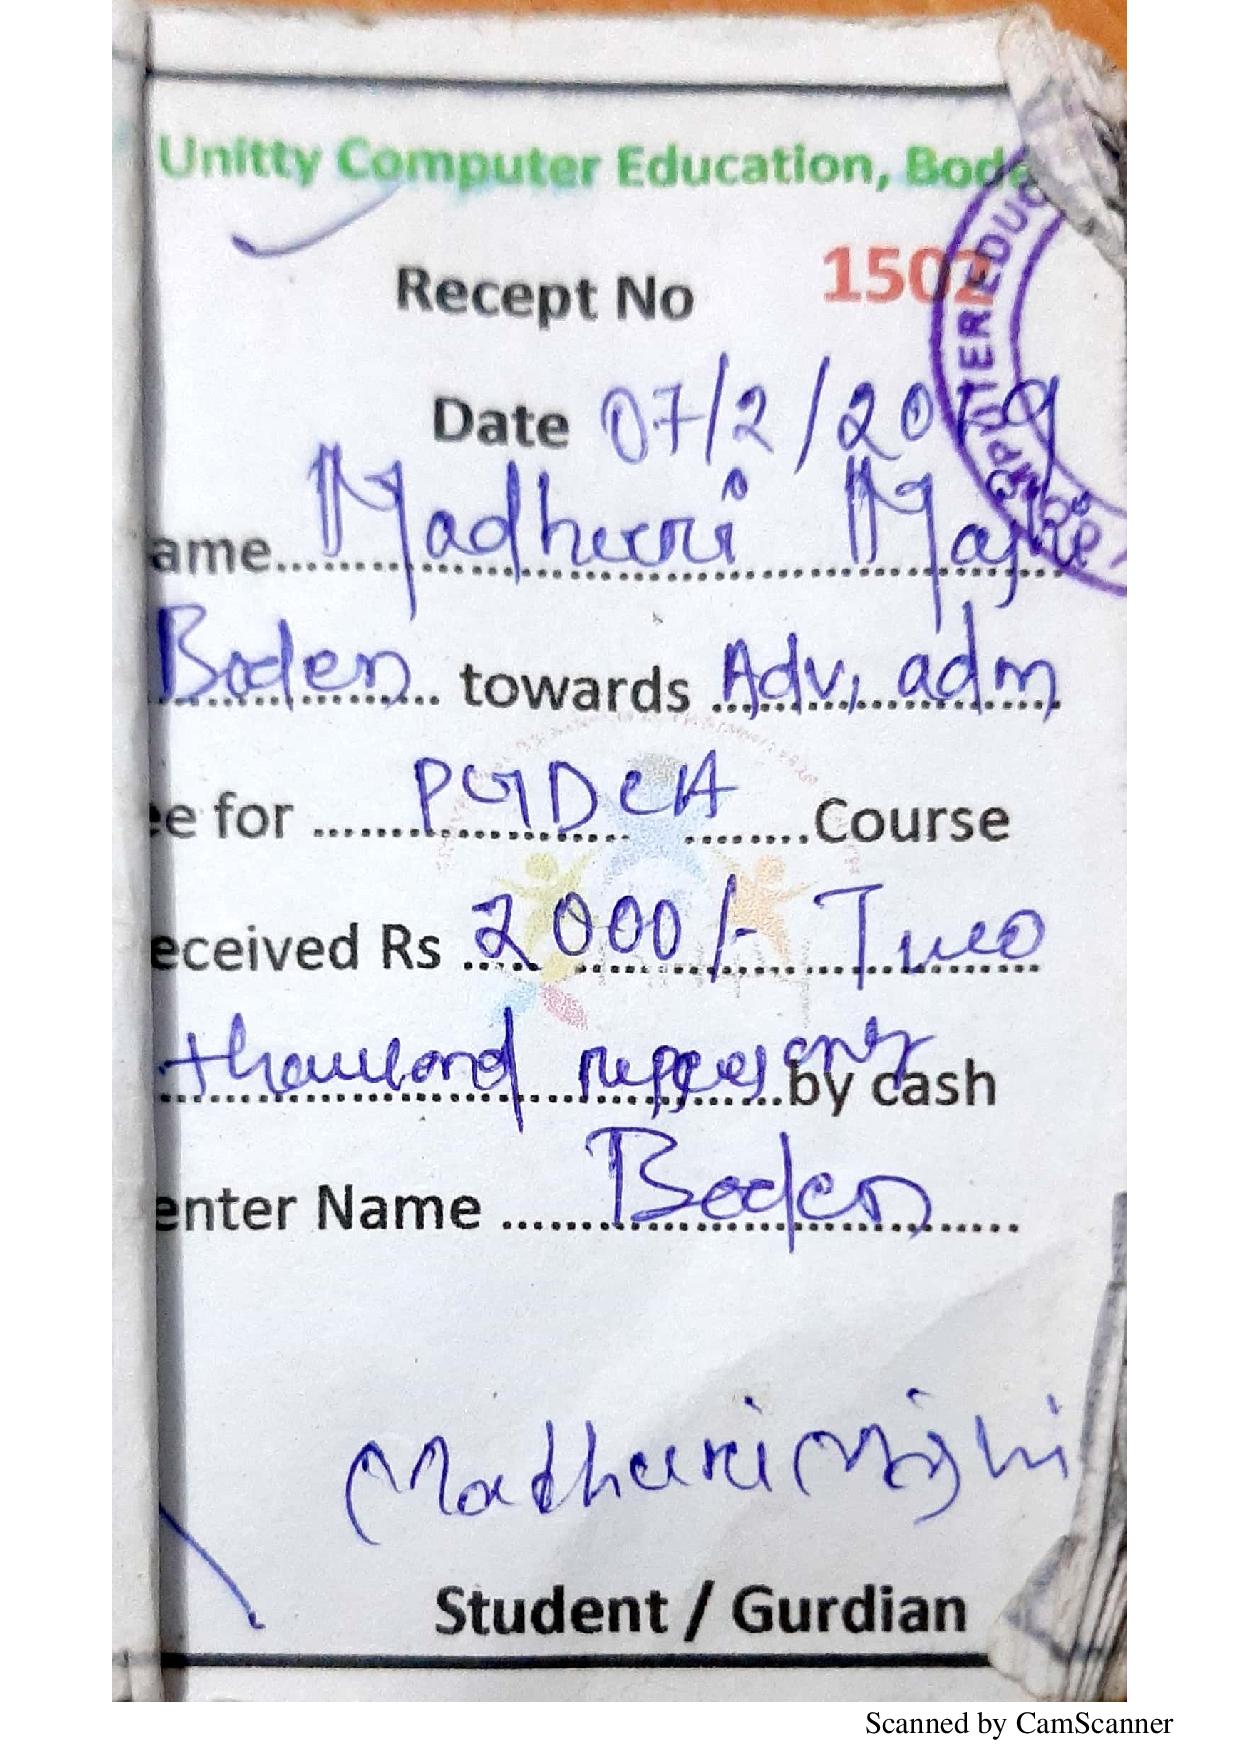 Unitty Computer Education, Boda
Recept No 1502
Date 07/2/2019
ame Madhuri Majhi
Boden towards Adv, adm
ee for PGDCA Course
eceived Rs 2000/- Two
thousand rupees only by cash
enter Name Boden
Madhuri Majhi
Student / Gurdian
PUTER EDUC
Scanned by CamScanner